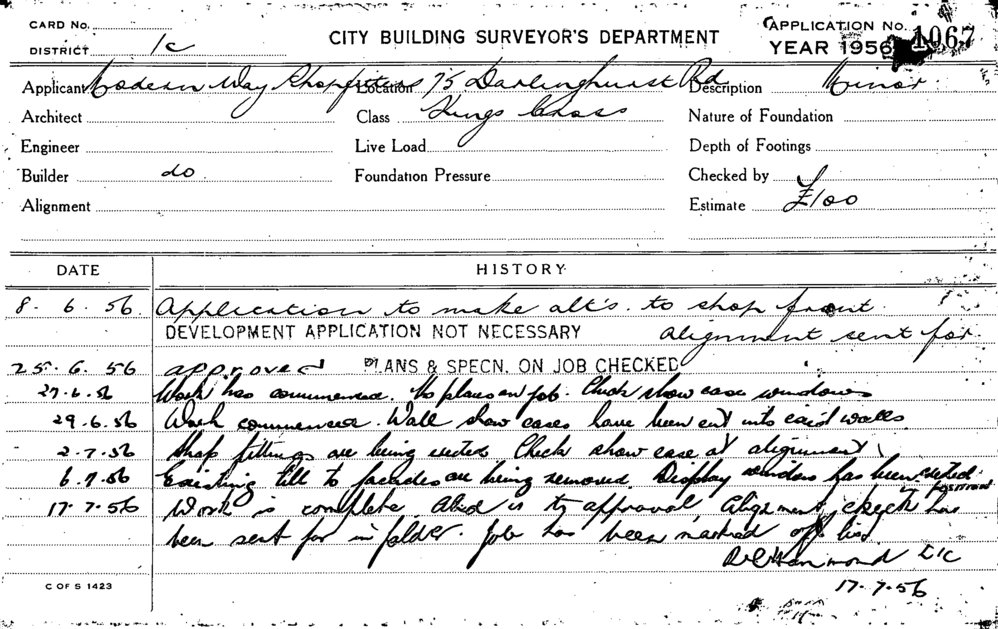 CARD No.
DISTRICT 1c
CITY BUILDING SURVEYOR'S DEPARTMENT
APPLICATION No. 1067
YEAR 1956
Applicant Modern Way Shopfitters Location 75 Darlinghurst Rd Description Minor
Architect Class Kings Cross Nature of Foundation
Engineer Live Load Depth of Footings
Builder do Foundation Pressure Checked by
Alignment Estimate £100
DATE HISTORY
8. 6. 56. Application to make alt's. to shop front.
DEVELOPMENT APPLICATION NOT NECESSARY alignment sent for
25. 6. 56 approved PLANS & SPECN. ON JOB CHECKED
27.6.56 Work has commenced. No plans on job. Check show case windows
29.6.56 Work commenced. Wall show cases have been cut into walls
2.7.56 Shop fittings are being erected Check show case at alignment
6.7.56 Existing to facades are being removed. Display windows has been erected in position
17.7.56 Work is complete, is to approval, Alignment check has
been sent for in folder. Job has been marked off list
Hammond 1/C
17.7.56
C OF S 1423